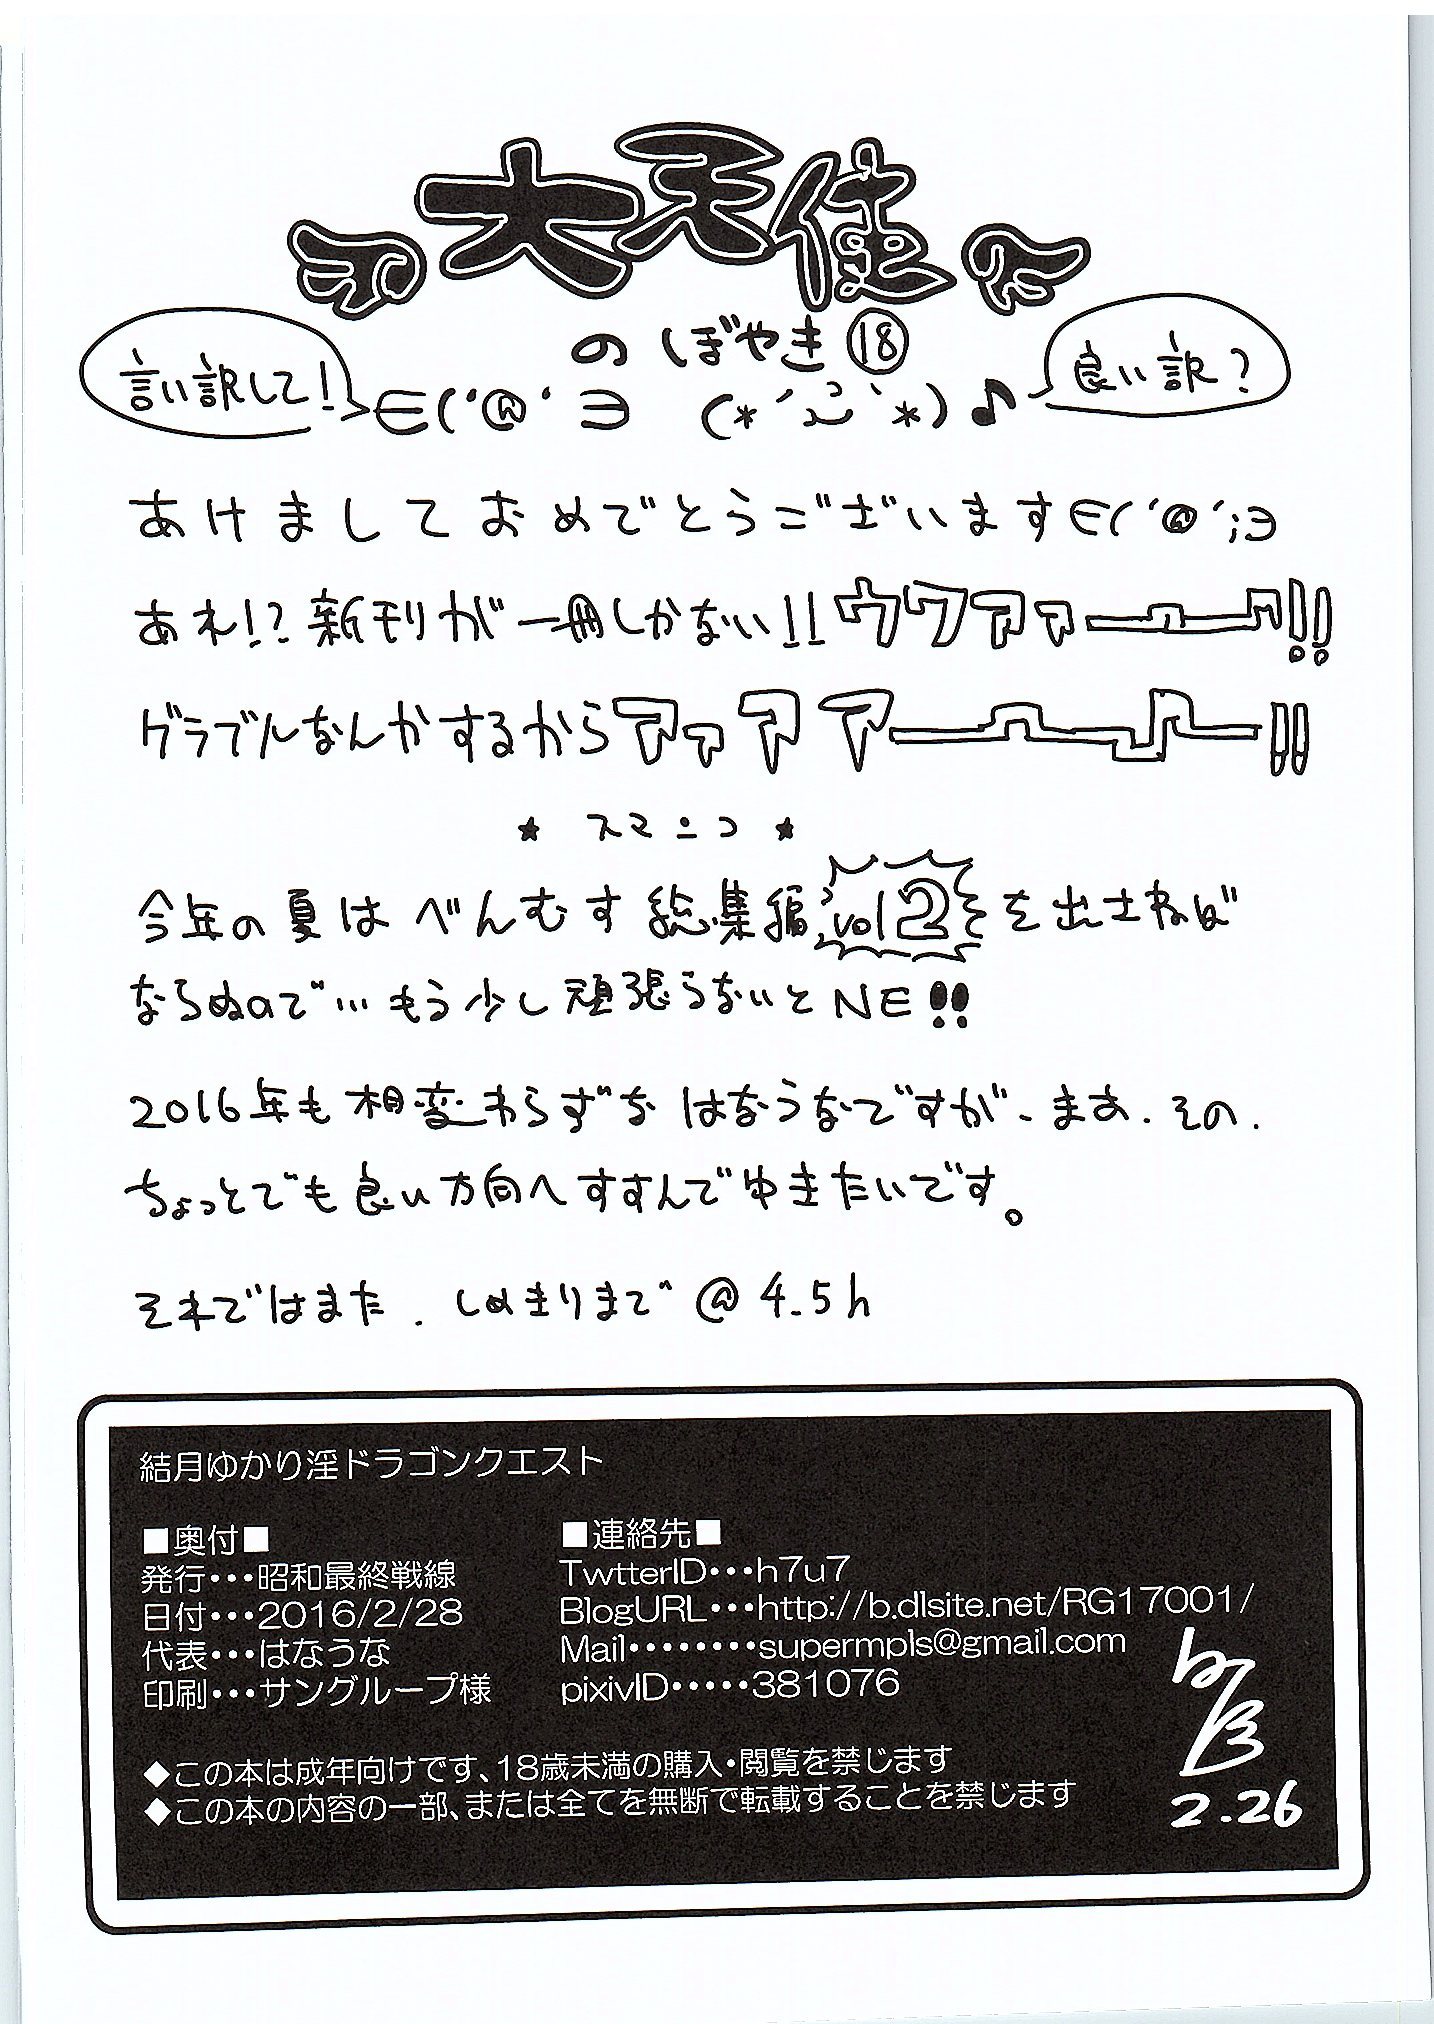 大天使
のぼやき⑱
言い訳して!
∈('@'∋ (*´ω`*)♪
良い訳?
あけましておめでとうございます∈('@';∋
あれ!?新刊が一冊しかない!!ウワァァーーー!!
グラブルなんかするからアァアアーーー!!
★ スマニコ ★
今年の夏はべんむす総集編vol2を出さねば
ならぬので…もう少し頑張らないとNE!!
2016年も相変わらずなはなうなですが、まぁ、その、
ちょっとでも良い方向へすすんでゆきたいです。
それではまた、しめきりまで@4.5h
結月ゆかり淫ドラゴンクエスト
■奥付■
発行・・・昭和最終戦線
日付・・・2016/2/28
代表・・・はなうな
印刷・・・サングループ様
■連絡先■
TwtterID・・・h7u7
BlogURL・・・http://b.dlsite.net/RG17001/
Mail・・・・・・・・supermpls@gmail.com
pixivID・・・・・381076
◆この本は成年向けです、18歳未満の購入・閲覧を禁じます
◆この本の内容の一部、または全てを無断で転載することを禁じます
2.26